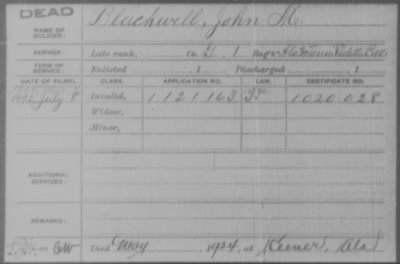 DEAD
NAME OF SOLDIER: Blackwell, John M.
SERVICE: Late rank, Co. G, 1 Reg't Ala & Tenn Vidette Cav
TERM OF SERVICE: Enlisted , 1 Discharged , 1
DATE OF FILING. CLASS. APPLICATION NO. LAW. CERTIFICATE NO.
July 8 Invalid, 1121163 1020028
Widow,
Minor,
ADDITIONAL SERVICES:
REMARKS:
Died May , 1924, at Keener, Ala